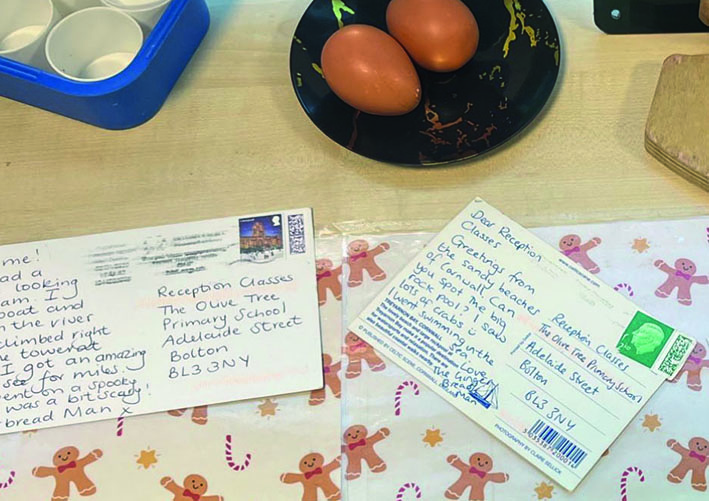 me!
ad a
looking
am. I
boat and
n the river
climbed right
towerat
I got an amazing
see for miles.
ent on a spooky
was a bit scary!
bread Man x
Reception Classes
The Olive Tree
Primary School
Adelaide Street
Bolton
BL3 3NY
Dear Reception
Classes
Greetings from
the sandy beaches
of Cornwall. Can
you spot the big
rock pool? I saw
lots of crabs
I went swimming in the
sea.
Love
The Ginger
Bread
man
Reception Classes
The Olive Tree Primary School
Adelaide Street
Bolton
BL3 3NY
TREYARNON BAY, CORNWALL
PHOTOGRAPH BY CLAIRE SELLICK